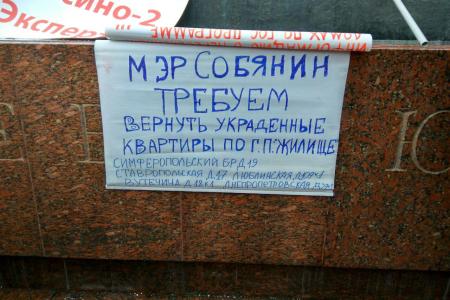 СИНО-2
Экспер
ДОМАХ ПО ГОС ПРОГРАММЕ
МЭР СОБЯНИН
ТРЕБУЕМ
ВЕРНУТЬ УКРАДЕННЫЕ
КВАРТИРЫ ПО Г.П."ЖИЛИЩЕ"
СИМФЕРОПОЛЬСКИЙ БР.Д.19
СТАВРОПОЛЬСКАЯ Д.17 ЛЮБЛИНСКАЯ
Д.18К1 ДНЕПРОПЕТРОВСКАЯ
Ю